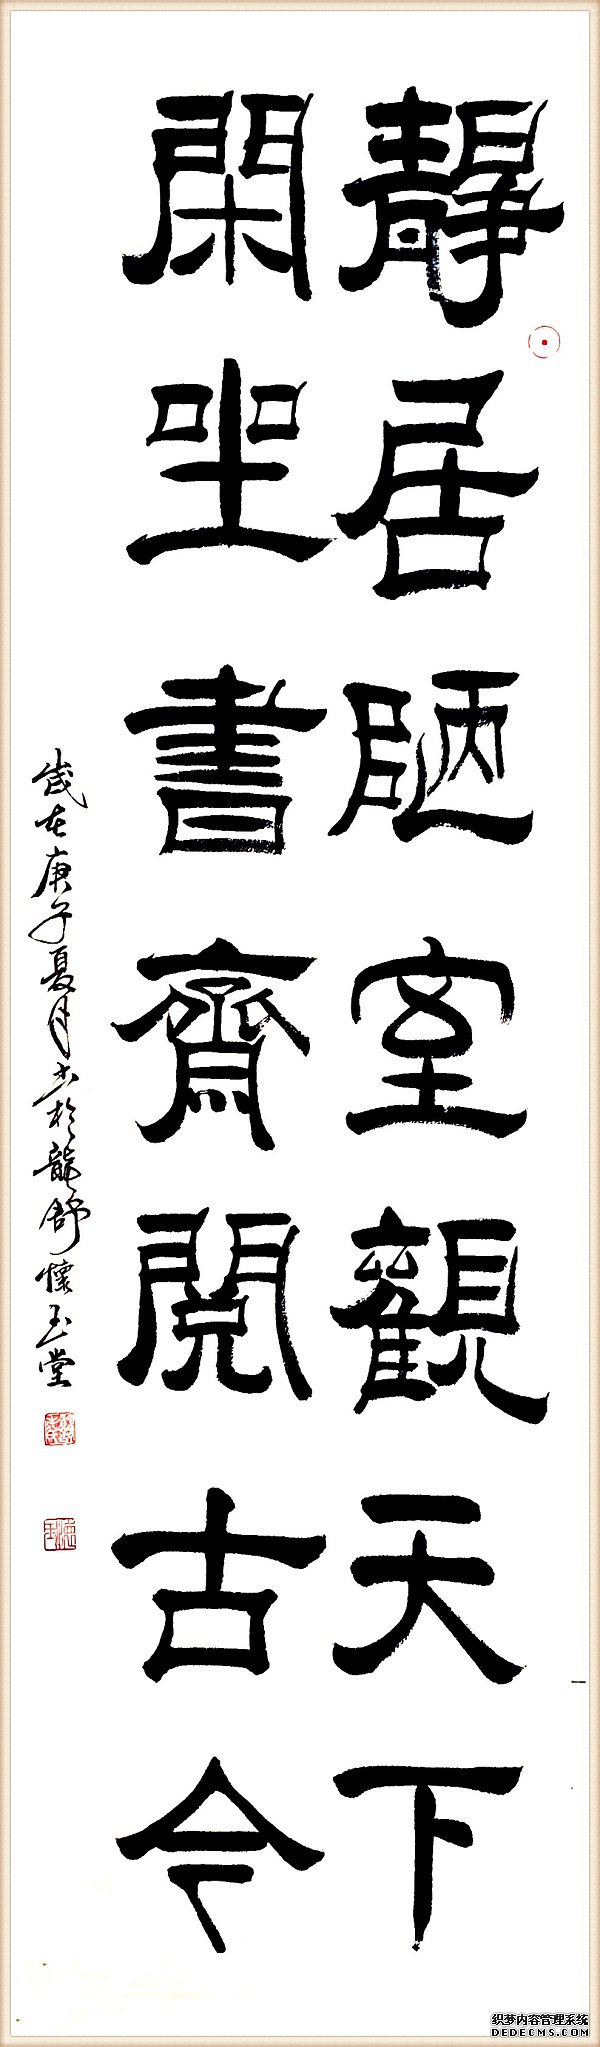 靜居陋室觀天下
閑坐書齋閱古今
歲在庚子夏月書於龍舒懷玉堂
织梦内容管理系统
DEDECMS.COM